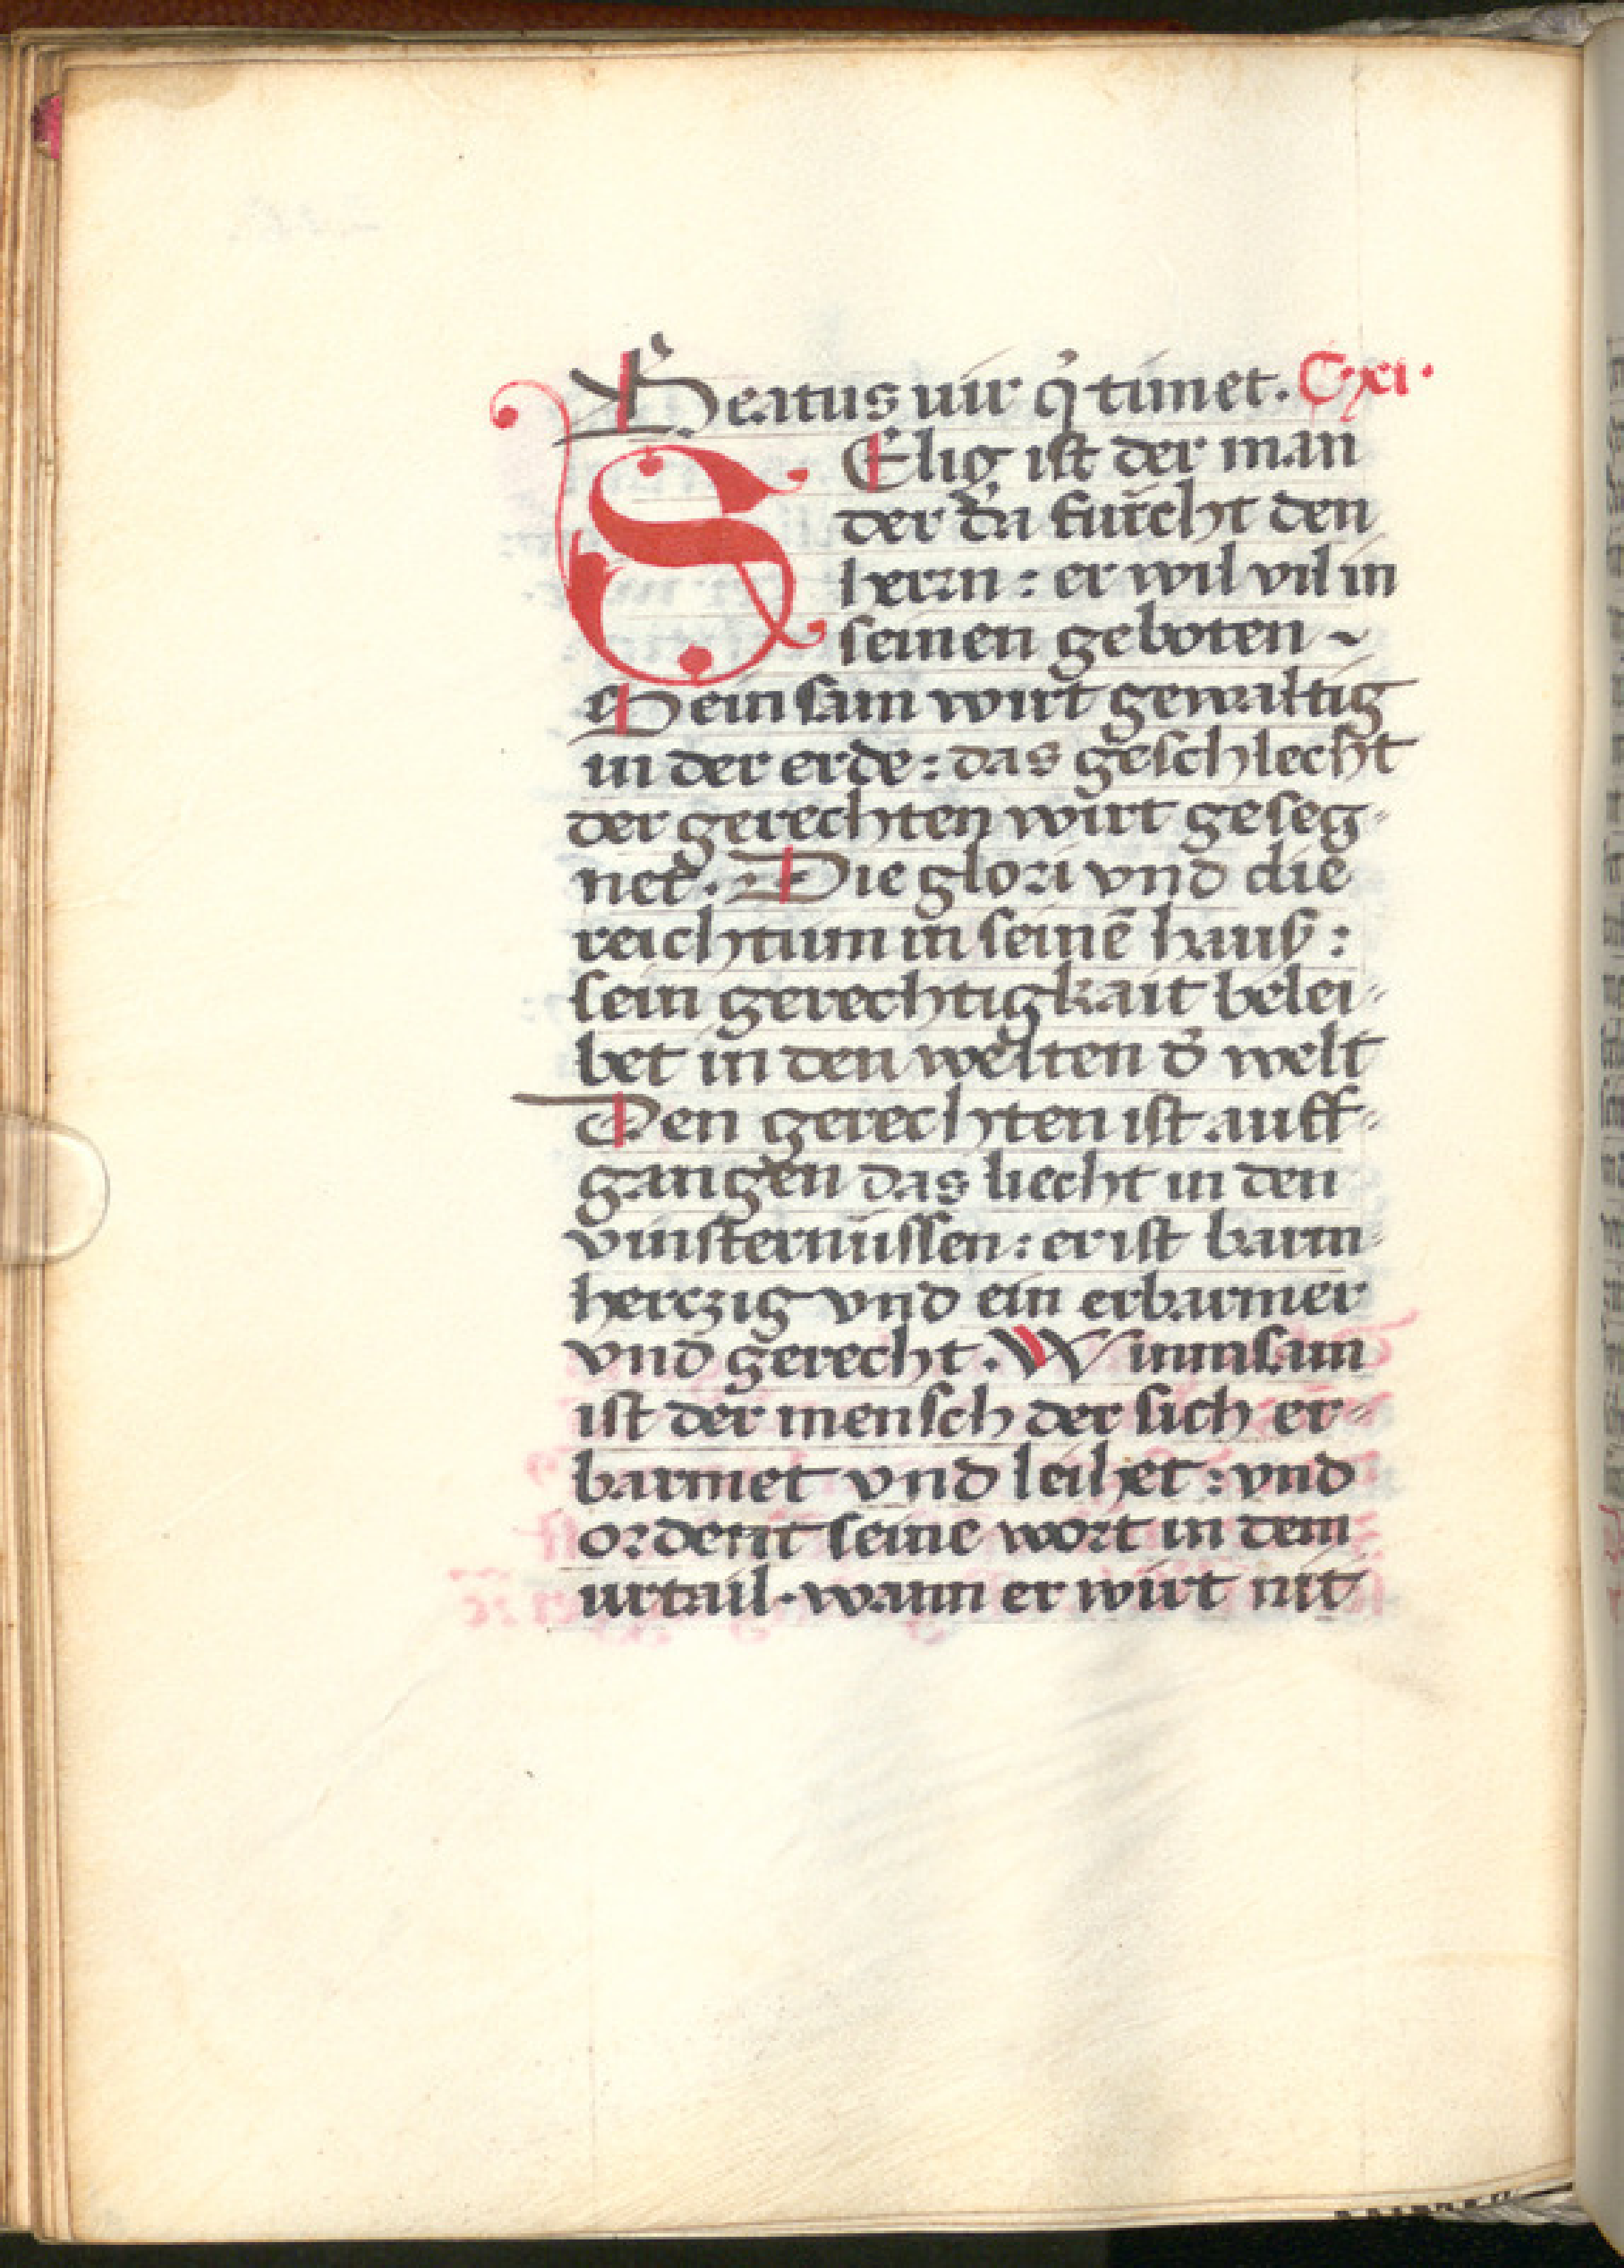 Beatus uir q̇ timet. Cxi.
SElig ist der man
der da furcht den
herrn : er wil vil in
seinen geboten ~
Sein sam wirt gewaltig
in der erde : das geschlecht
der gerechten wirt geseg⸗
net . Die glori vnd die
reichtum in seinē haus :
sein gerechtigkait belei⸗
bet in den welten d̕ welt
Den gerechten ist auff⸗
gangen das liecht in den
vinsternussen : er ist barm⸗
herczig vnd ein erbarmer
vnd gerecht . Wunnsam
ist der mensch der sich er⸗
barmet vnd leihet : vnd
ordent seine wort in dem
urtail . wann er wirt nit